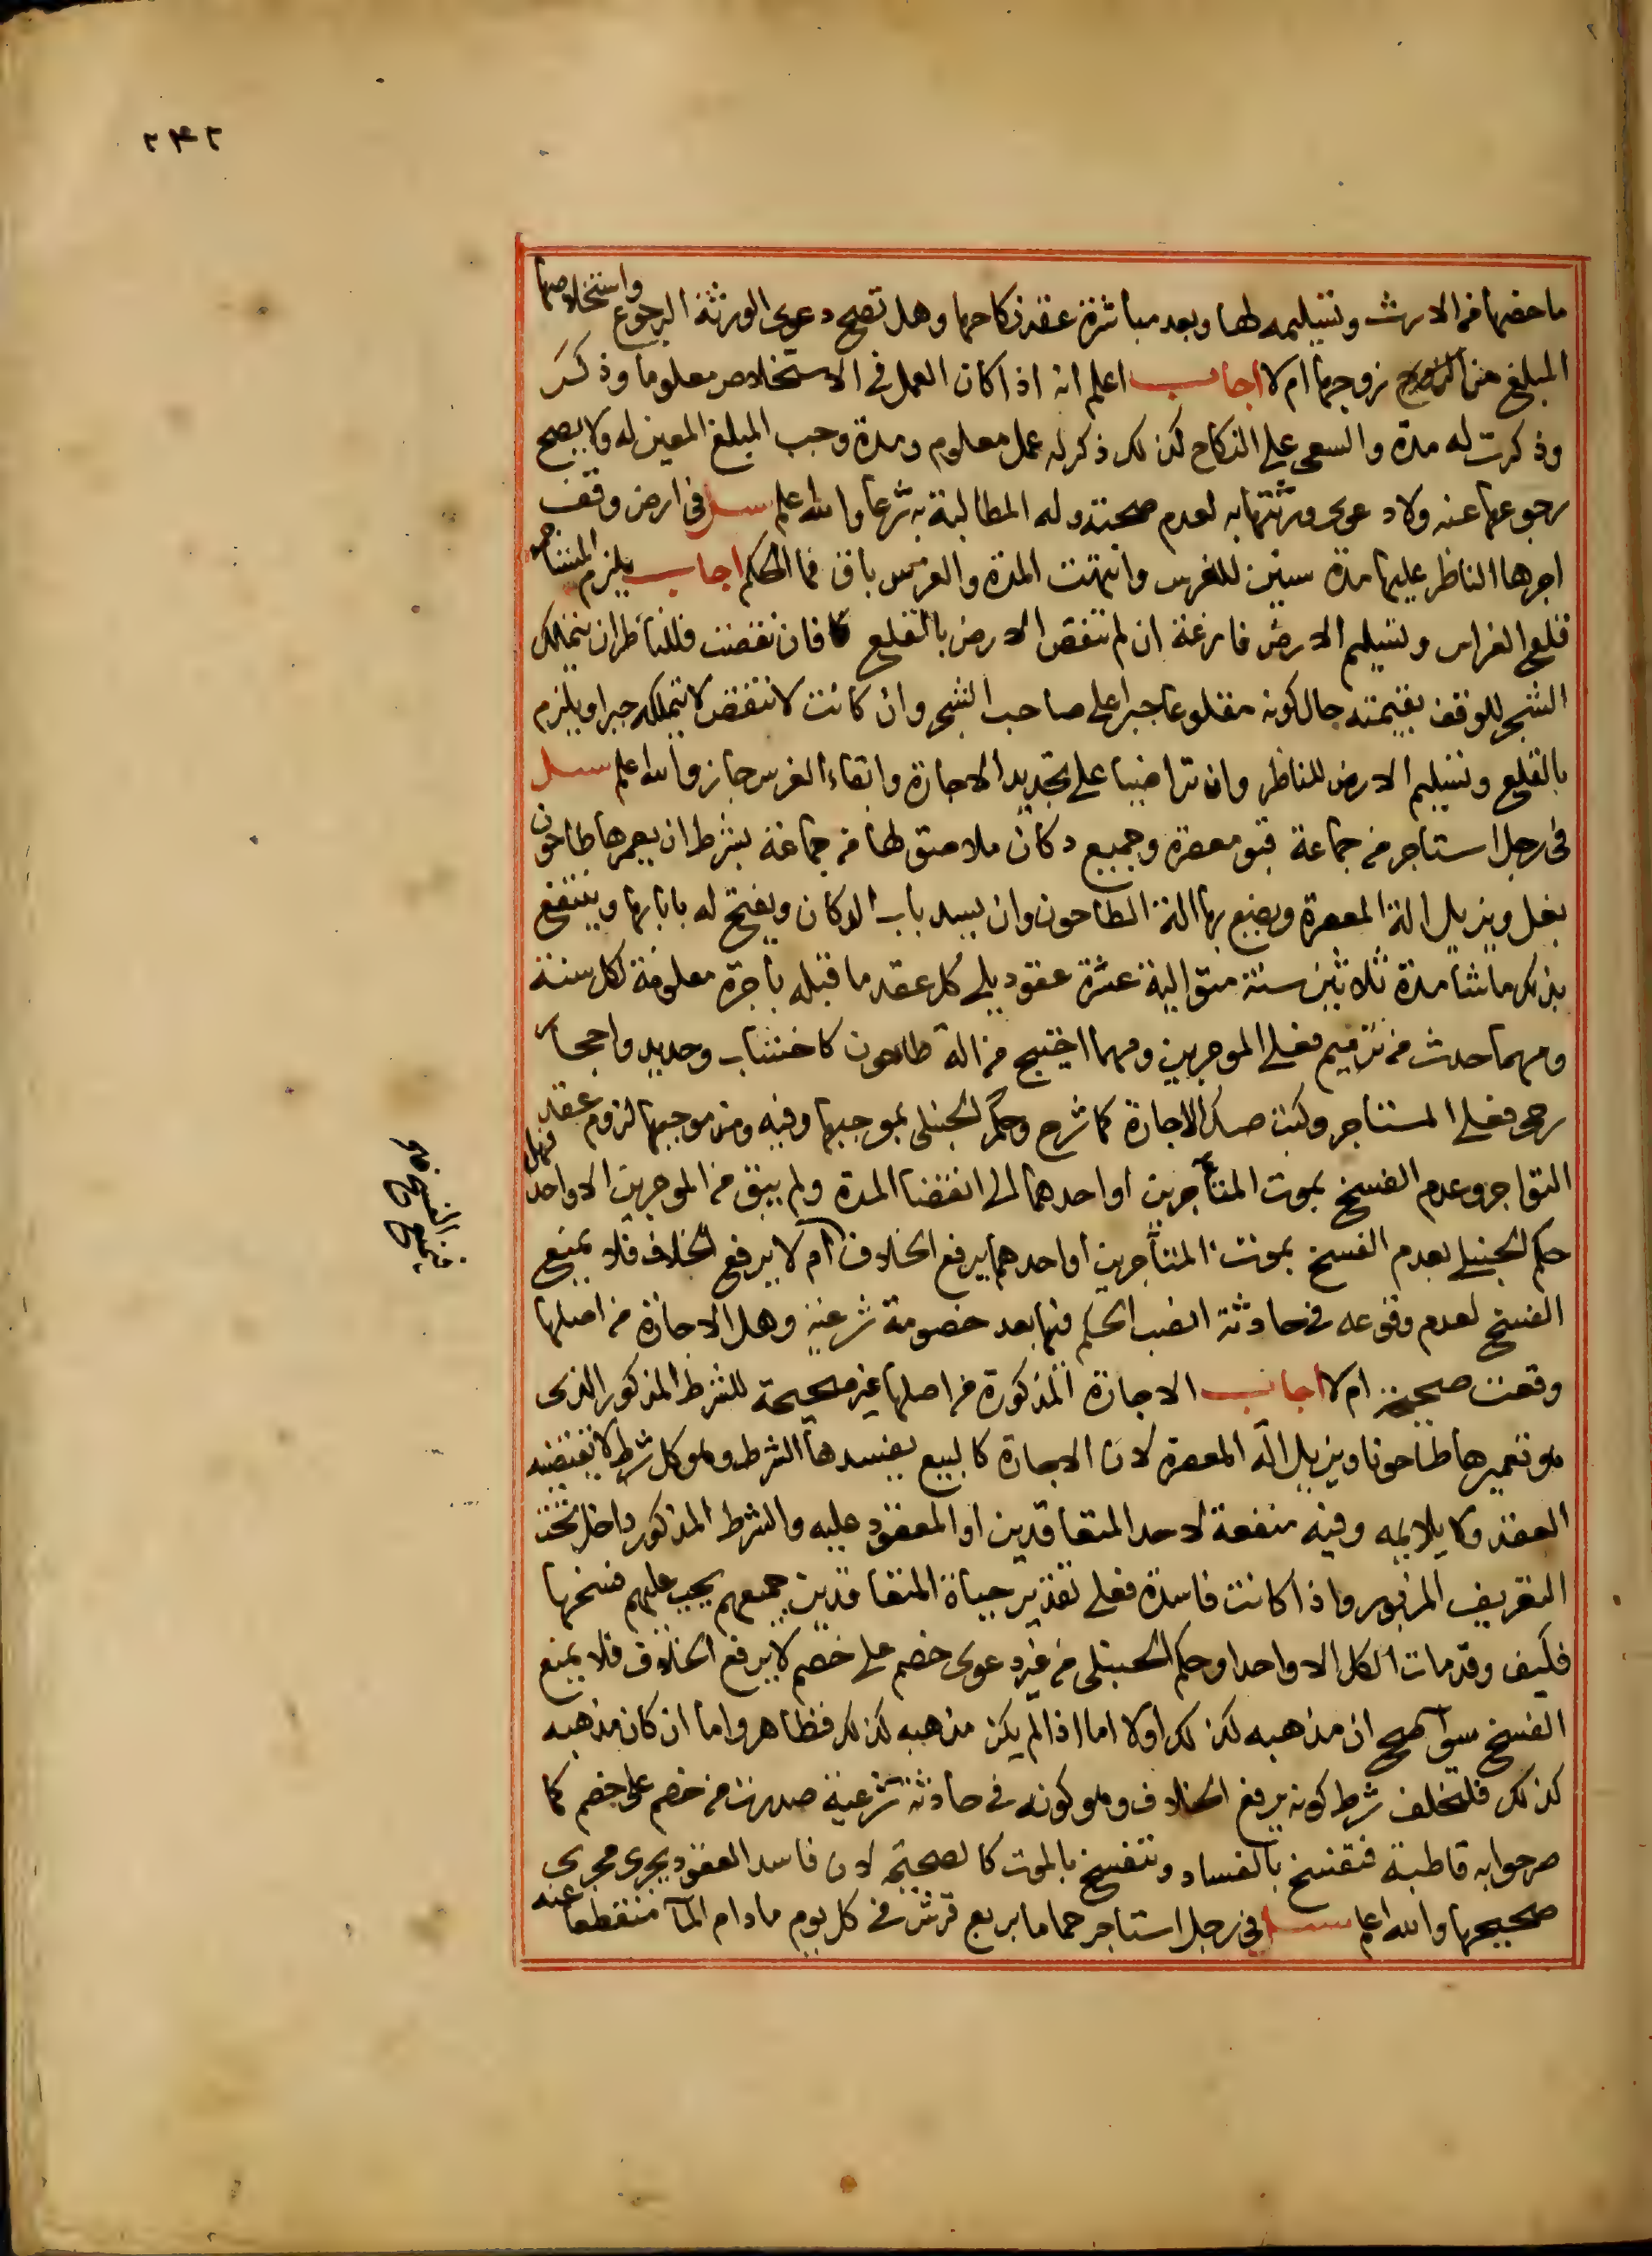 ٢٤٢
ما خصها من الارث وتسليمه لها وبعد مباشرة عقد نكاحها وهل تصح دعوى الورثة الرجوع واستخلاصها
المبلغ من زوجها ام لا اجاب اعلم انه اذا كان العمل في الاستخلاص معلوما وذكر
وذكرت له مدة والسعي على النكاح كذلك ذكر له عمل معلوم ومدة وجب المبلغ المعين له ولا يصح
رجوعها عنه ولا دعوى ورثتها به لعدم صحته وله المطالبة به شرعا والله اعلم سئل في ارض وقف
اجرها الناظر عليها مدة سنين للغرس وانتهت المدة والغرس باق فما الحكم اجاب يلزم المستاجر
قلع الغراس وتسليم الارض فارغة ان لم تنقص الارض بالقلع فان نقصت فللناظر ان يتملك
الشجر للوقف بقيمته حال كونه مقلوعا جبرا على صاحب الشجر وان كانت لا تنقص لا يتملكه جبرا ويلزم
بالقلع وتسليم الارض للناظر وان تراضيا على تجديد الاجارة وابقاء الغرس جاز والله اعلم سئل
في رجل استاجر من جماعة قبو معصرة وجميع دكان ملاصق لها من جماعة بشرط ان يعمرها طاحون
بغل ويزيل الة المعصرة ويضع بها الة الطاحون وان يسد باب الدكان ويفتح له بابا بها وينتفع
بذلك ما شا مدة ثلاثين سنة متوالية عشرة عقود يلي كل عقد ما قبله باجرة معلومة لكل سنة
ومهما حدث من ترميم فعلى الموجرين ومهما احتيج من الة طاحون كاخشاب وحديد واحجار
رحى فعلى المستاجر وكتب صك الاجارة كما شرح وحكم الحنبلي بموجبها وفيه ومن موجبها لزوم عقد
التواجر وعدم الفسخ بموت المتآجرين او احدهما الى انقضا المدة ولم يبق من الموجرين الا واحد فهل
حكم الحنبلي بعدم الفسخ بموت المتآجرين او احدهما يرفع الخلاف ام لا يرفع الخلاف فلا يمنع
الفسخ لعدم وقوعه في حادثة انصب الحكم فيها بعد خصومة شرعية وهل الاجارة من اصلها
وقعت صحيحة ام لا اجاب الاجارة المذكورة من اصلها غير صحيحة للشرط المذكور الذي
هو تعميرها طاحونا ويزيل الة المعصرة لان الاجارة كالبيع يفسدها الشرط وهو كل شرط لا يقتضيه
العقد ولا يلايمه وفيه منفعة لاحد المتعاقدين او المعقود عليه والشرط المذكور داخل تحت
التعريف المزبور واذا كانت فاسدة فعلى تقدير حياة المتعاقدين جميعهم يجب عليهم فسخها
فكيف وقد مات الكل الا واحدا وحكم الحنبلي من غير دعوى خصم على خصم لا يرفع الخلاف فلا يمنع
الفسخ سوآ صح ان مذهبه كذلك اولا اما اذا لم يكن مذهبه كذلك فظاهر واما ان كان مذهبه
كذلك فلتخلف شرط كونه يرفع الخلاف وهو كونه في حادثة شرعية صدرت من خصم على خصم كما
صرحوا به قاطبة فتفسخ بالفساد وتنفسخ بالموت كالصحيحة لان فاسد العقود يجري مجرى
صحيحها والله اعلم سئل في رجل استاجر حماما بربع قرش في كل يوم ما دام المآ منقطعا عنه
الفسخ